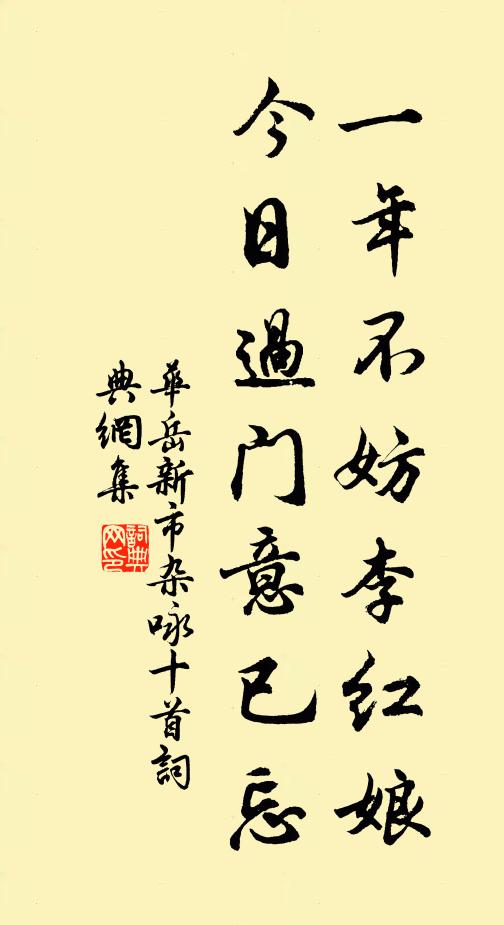 一年不妨李红娘
今日過门意已忘
華岳新市杂咏十首詞
典網集
詞典网印